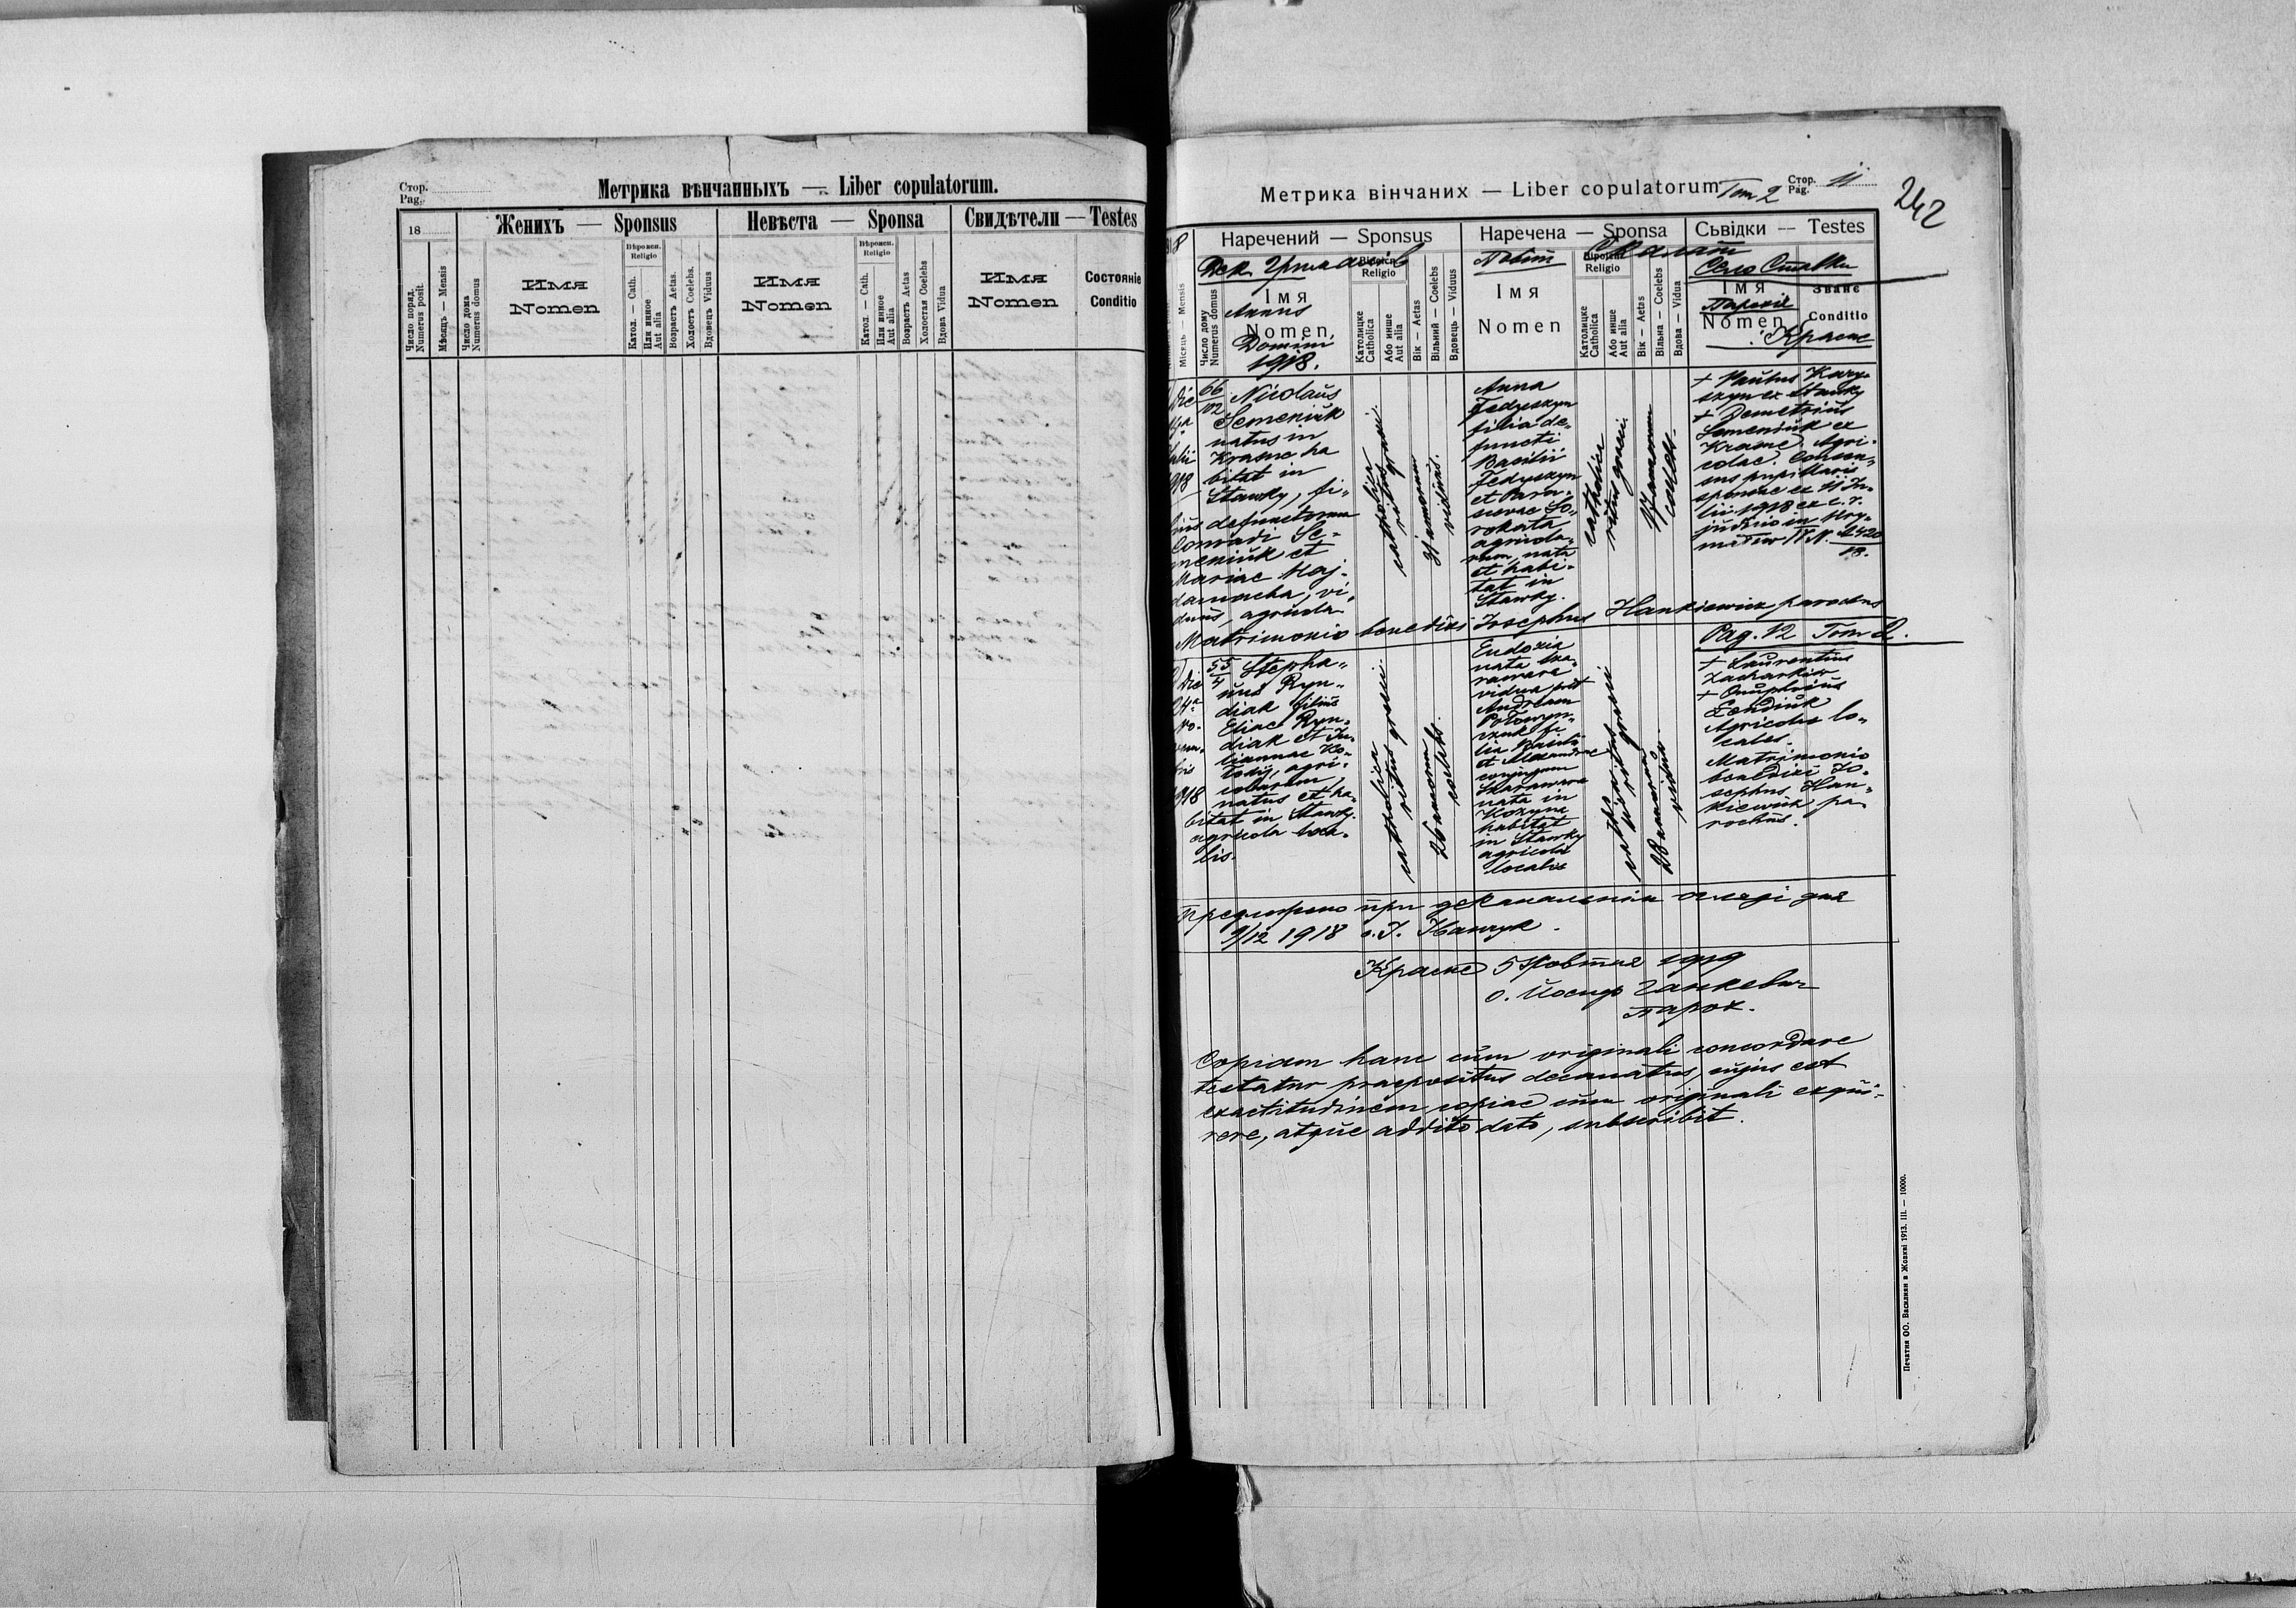 Стор.
Pag.
Метрика вѣнчанныхъ — Liber copulatorum.
18
Женихъ — Sponsus
Невѣста — Sponsa
Свидѣтели — Testes
Число поряд.
Numerus posit.
Мѣсяцъ — Mensis
Число дома
Numerus domus
Имя
Nomen
Вѣроисп.
Religio
Катол. — Cath.
Или инное
Aut alia
Возрастъ Aetas.
Холостъ Coelebs.
Вдовекъ Viduus
Имя
Nomen
Вѣроисп.
Religio
Катол. — Cath.
Или инное
Aut alia
Возрастъ Aetas
Холостая Coelebs
Вдова Vidua
Имя
Nomen
Состояніе
Conditio
Метрика вінчаних — Liber copulatorum Tom 2
Стор.
Pag. 11
242
8
Наречений — Sponsus
Наречена — Sponsa
Сьвідки — Testes
Дек.
Повіт
Скалат
Село Ставки
Парохія
Красне
Місяць — Mensis
Число дому
Numerus domus
Імя
Nomen
Annus
Domini
1918.
Religio
Католицке
Catholica
Або инше
Aut alia
Вік — Aetas
Вільний — Coelebs
Вдовець — Viduus
Імя
Nomen
Religio
Католицке
Catholica
Або инше
Aut alia
Вік — Aetas
Вільна — Coelebs
Вдова — Vidua
Імя
Nomen
Званє
Conditio
Die
1918
66
12
Nicolaus
Semeniuk
natus in
Krasne ha
bitat in
Stawky, fi-
lius defunctorum
Conradi Se-
meniuk et
Mariae Haj-
damacha, vi-
duus, agricola
catholica
ritus graeci.
annorum
viduus.
Anna
Fedyszyn
filia de-
functi
Basilii
Fedyszyn
et Para-
scevae So-
rokata
agricola-
rum, nata
et habi-
tat in
Stawky.
catholica
ritus graeci
annorum
coelebs.
+ Paulus Kary-
szyn ex Stawky
+ Demetrius
Semeniuk ex
Krasne. Agri-
colae. Consen-
sus pupillaris
sponsae ex 11 Ju-
lii 1918 ex c. r.
judicio in Hry-
małow
Matrimonio benedixi Josephus Hankiewicz parochus
Pag. 12 Tom 2.
Die
24a
No-
vem-
bris
1918
55
4
Stepha-
nus Ryn-
diak filius
Eliae Ryn-
diak et Ju-
liannae Ko-
łodij, agri-
colarum,
natus et ha-
bitat in Stawky
agricola loca-
lis.
catholica
ritus graeci.
26 annorum
coelebs.
Eudoxia
nata Ska-
rawara
vidua post
Andream
filia Basilii
et Alexandrae
conjugum
nata in
habitat
in Stawky
agricola
localis
catholica
ritus graeci
28 annorum
vidua.
+ Laurentius
Zacharkiw
+ Onuphrius
Agricolae lo-
cales.
Matrimonio
benedixi Jo-
sephus Han-
kiewicz pa-
rochus.
при деканальнім огляді дня
9/12 1918 о. І.
Красне 5 Жовтня 1919
о. Йосиф Ганкевич
парох.
Copiam hanc cum originali concordare
testatur praepositus decanatus, cujus est
exactitudinem copiae cum originali exqui-
rere, atque addito dato, subscribit.
Печатня ОО. Василиян в Жовкві 1913. III. — 10000.